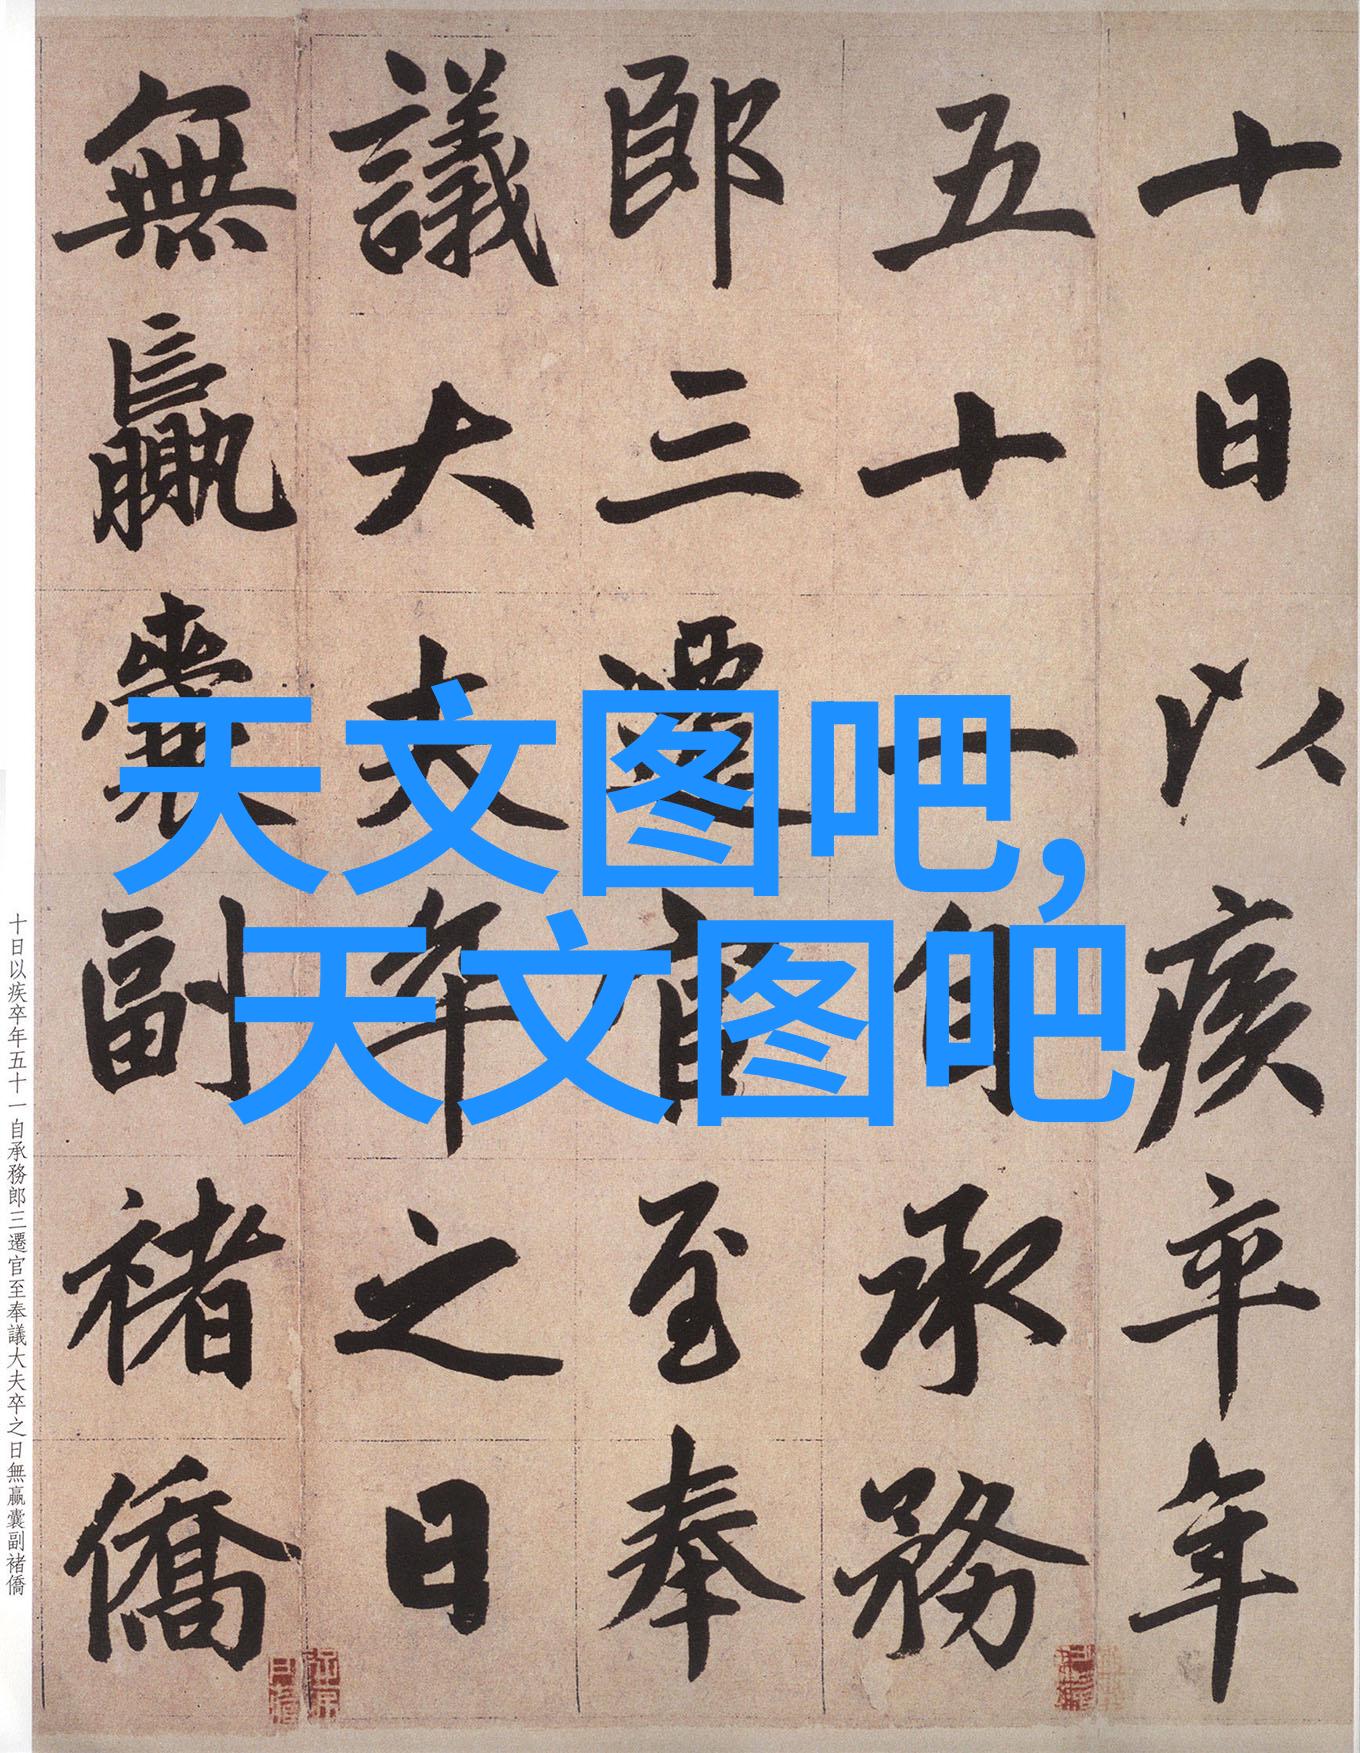 十日以疾卒年
五十一自承務
郎三遷官至奉
議大夫卒之日
無贏囊副褚僑
天文图吧,
天文图吧
十日以疾卒年五十一自承務郎三遷官至奉議大夫卒之日無贏囊副褚僑